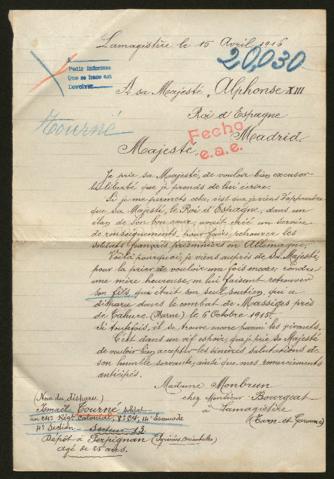 Lamagistère le 15 Avril 1916
20,030
Pedir informes
Que se hace en
A sa Majesté, Alphonse XIII
Roi d'Espagne
Madrid
Tourné
Fecho
e.a.e.
Majesté
Je prie sa Majesté, de vouloir bien excuser
liberté que je prends de lui écrire.
Si je me permets cela, c'est que je viens d'apprendre
que Sa Majesté, le Roi d'Espagne, dans un
élan de son bon cœur, avait créé un bureau
de renseignements, pour faire retrouver les
soldats français prisonniers en Allemagne,
Voilà pourquoi, je viens auprès de Sa Majesté
pour la prier de vouloir une fois encore, rendre
une mère heureuse, en lui faisant retrouver
son fils qui était son seul soutien, qui a
disparu dans le combat de Massiges près
de Tahure (Marne) le 6 Octobre 1915.
Si toutefois, il se trouve encore parmi les vivants.
C'est dans un vif espoir, que je prie Sa Majesté
de vouloir bien accepter les sincères salutations de
son humble servante, ainsi que mes remerciements
anticipés.
Madame Montbrun
chez Monsieur Bourgeat
à Lamagistère
(Tarn et Garonne)
(Nom du disparu)
Ismaël Tourné soldat
Colonial 14 Escouade
4e Section Secteur 13
Dépôt à Perpignan (Pyrénées orientales)
âgé de 25 ans.